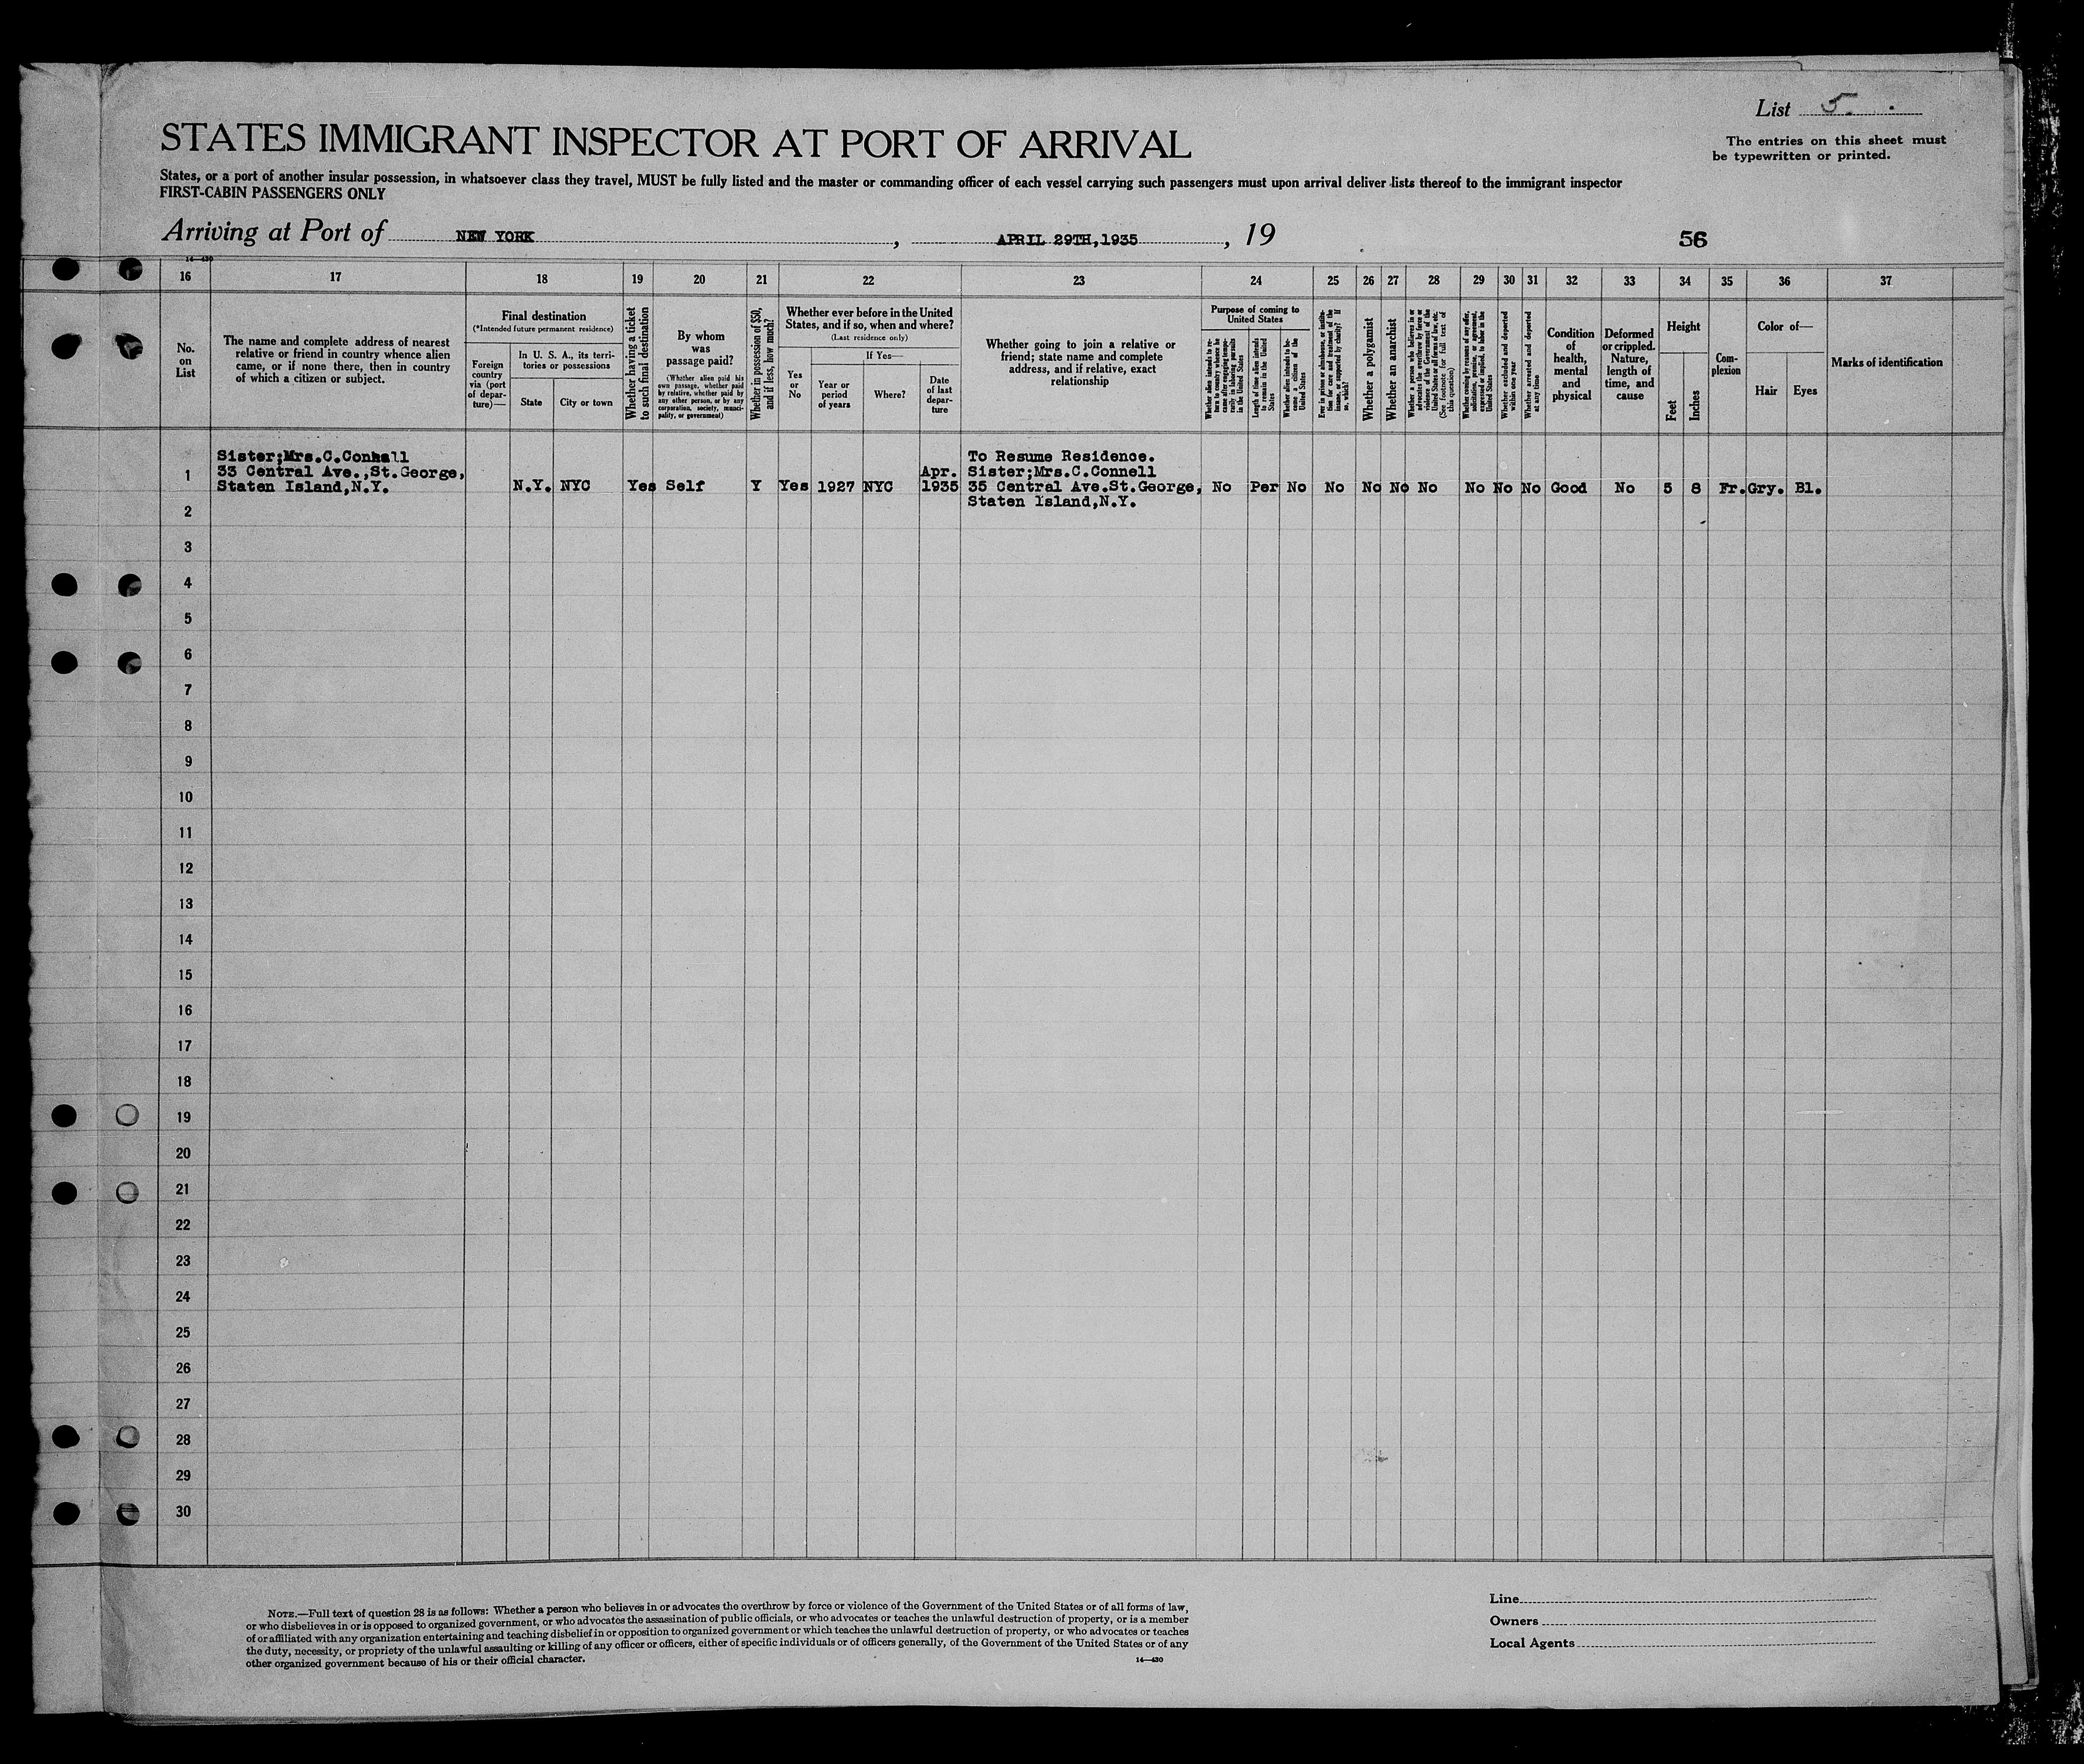 List 5
STATES IMMIGRANT INSPECTOR AT PORT OF ARRIVAL
The entries on this sheet must
be typewritten or printed.
States, or a port of another insular possession, in whatsoever class they travel, MUST be fully listed and the master or commanding officer of each vessel carrying such passengers must upon arrival deliver lists thereof to the immigrant inspector
FIRST-CABIN PASSENGERS ONLY
Arriving at Port of NEW YORK, APRIL 29TH,1935, 19
56
14—430
16 17 18 19 20 21 22 23 24 25 26 27 28 29 30 31 32 33 34 35 36 37
No.
on
List
The name and complete address of nearest
relative or friend in country whence alien
came, or if none there, then in country
of which a citizen or subject.
Final destination
(*Intended future permanent residence)
Foreign
country
via (port
of depar-
ture)—
In U. S. A., its terri-
tories or possessions
State
City or town
Whether having a ticket
to such final destination
By whom
was
passage paid?
(Whether alien paid his
own passage, whether paid
by relative, whether paid by
any other person, or by any
corporation, society, munici-
pality, or government)
Whether in possession of $50,
and if less, how much?
Whether ever before in the United
States, and if so, when and where?
(Last residence only)
Yes
or
No
If Yes—
Year or
period
of years
Where?
Date
of last
depar-
ture
Whether going to join a relative or
friend; state name and complete
address, and if relative, exact
relationship
Purpose of coming to
United States
Whether alien intends to re-
turn to country whence he
came after engaging tempo-
rarily in laboring pursuits
in the United States
Length of time alien intends
to remain in the United
States
Whether alien intends to be-
come a citizen of the
United States
Ever in prison or almshouse, or institu-
tion for care and treatment of the
insane, or supported by charity? If
so, which?
Whether a polygamist
Whether an anarchist
Whether a person who believes in or
advocates the overthrow by force or
violence of the Government of the
United States or all forms of law, etc.
(See footnote for full text of
this question)
Whether coming by reason of any offer,
solicitation, promise, or agreement,
expressed or implied, to labor in the
United States
Whether excluded and deported
within one year
Whether arrested and deported
at any time
Condition
of
health,
mental
and
physical
Deformed
or crippled.
Nature,
length of
time, and
cause
Height
Feet
Inches
Com-
plexion
Color of—
Hair
Eyes
Marks of identification
Sister;Mrs.C.Connall To Resume Residence.
33 Central Ave.,St.George, Apr. Sister;Mrs.C.Connell
1 Staten Island,N.Y. N.Y. NYC Yes Self Y Yes 1927 NYC 1935 35 Central Ave.St.George, No Per No No No No No No No No Good No 5 8 Fr. Gry. Bl.
Staten Island,N.Y.
2
3
4
5
6
7
8
9
10
11
12
13
14
15
16
17
18
19
20
21
22
23
24
25
26
27
28
29
30
NOTE.—Full text of question 28 is as follows: Whether a person who believes in or advocates the overthrow by force or violence of the Government of the United States or of all forms of law,
or who disbelieves in or is opposed to organized government, or who advocates the assassination of public officials, or who advocates or teaches the unlawful destruction of property, or is a member
of or affiliated with any organization entertaining and teaching disbelief in or opposition to organized government or which teaches the unlawful destruction of property, or who advocates or teaches
the duty, necessity, or propriety of the unlawful assaulting or killing of any officer or officers, either of specific individuals or of officers generally, of the Government of the United States or of any
other organized government because of his or their official character.
14—430
Line
Owners
Local Agents